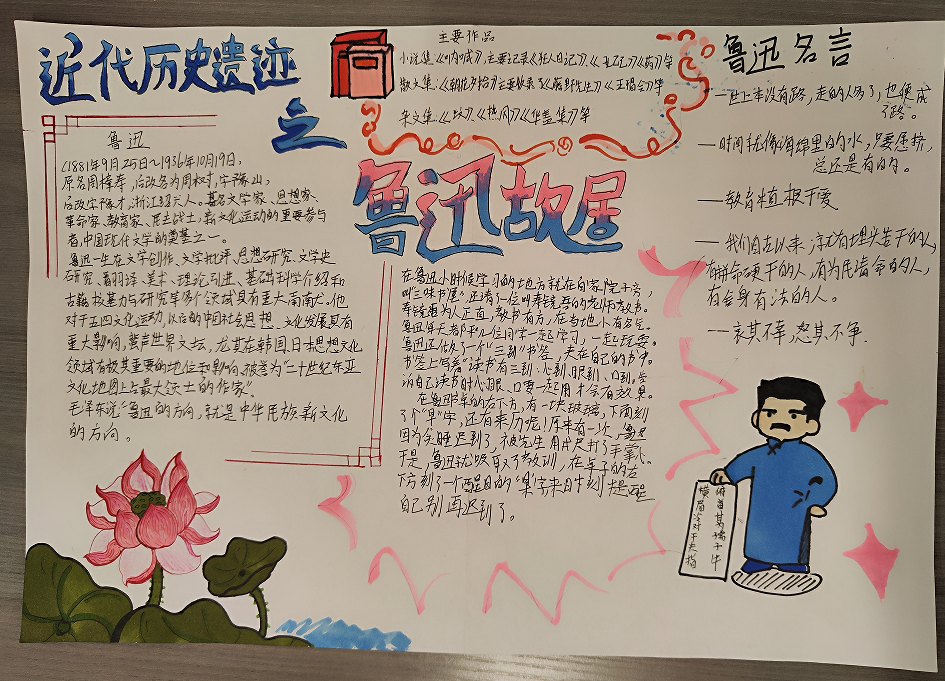 近代历史遗迹
之
鲁迅故居
主要作品
小说集《呐喊》,主要记录《狂人日记》《孔乙己》《药》等
散文集:《朝花夕拾》主要收录了《藤野先生》《五猖会》等
杂文集:《坟》《热风》《华盖集》等
鲁迅名言
—世上本没有路,走的人多了,也便成
了路。
—时间就像海绵里的水,只要愿挤,
总还是有的。
—教育植根于爱
—我们自古以来,就有埋头苦干的人,
有拼命硬干的人,有为民请命的人,
有舍身求法的人。
—哀其不幸,怒其不争.
鲁迅
(1881年9月25日~1936年10月19日,
原名周樟寿,后改名为周树,字豫山,
后改字豫才,浙江绍兴人。著名文学家、思想家、
革命家、教育家、民主战士,新文化运动的重要参与
者,中国现代文学的奠基之一。
鲁迅一生在文学创作、文学批评、思想研究、文学史
研究、翻译、美术、理论引进、基础科学介绍和
古籍校勘与研究等多个领域具有重大贡献。他
对于五四文化运动,以后的中国社会思想、文化发展具有
重大影响,蜚声世界文坛,尤其在韩国、日本思想文化
领域有极其重要的地位和影响,被誉为“二十世纪东亚
文化地图上占最大领土的作家”。
毛泽东说“鲁迅的方向,就是中华民族新文化
的方向。
在鲁迅小时候学习的地方就在自家院子旁,
叫“三味书屋”,还有一位叫寿镜吾的老师教书。
寿镜吾为人正直,教书有方,在当地小有名气。
鲁迅每天都和几位同学一起学习,一起玩耍。
鲁迅还做了一个“三到”书签,夹在自己的书中。
书签上写着“读书有三到:心到、眼到、口到。”告
诉自己读书时心、眼、口要一起用才会有效果。
在鲁迅书桌的右下方,有一块玻璃,下面刻
了个“早”字,还有来历呢!原来有一次,鲁迅
因为上学迟到了,被先生用戒尺打了手掌心。
于是,鲁迅就吸取了教训,在桌子的右
下方刻了一个醒目的“早”字来时刻提醒
自己别再迟到了。
横眉冷对千夫指
俯首甘为孺子牛